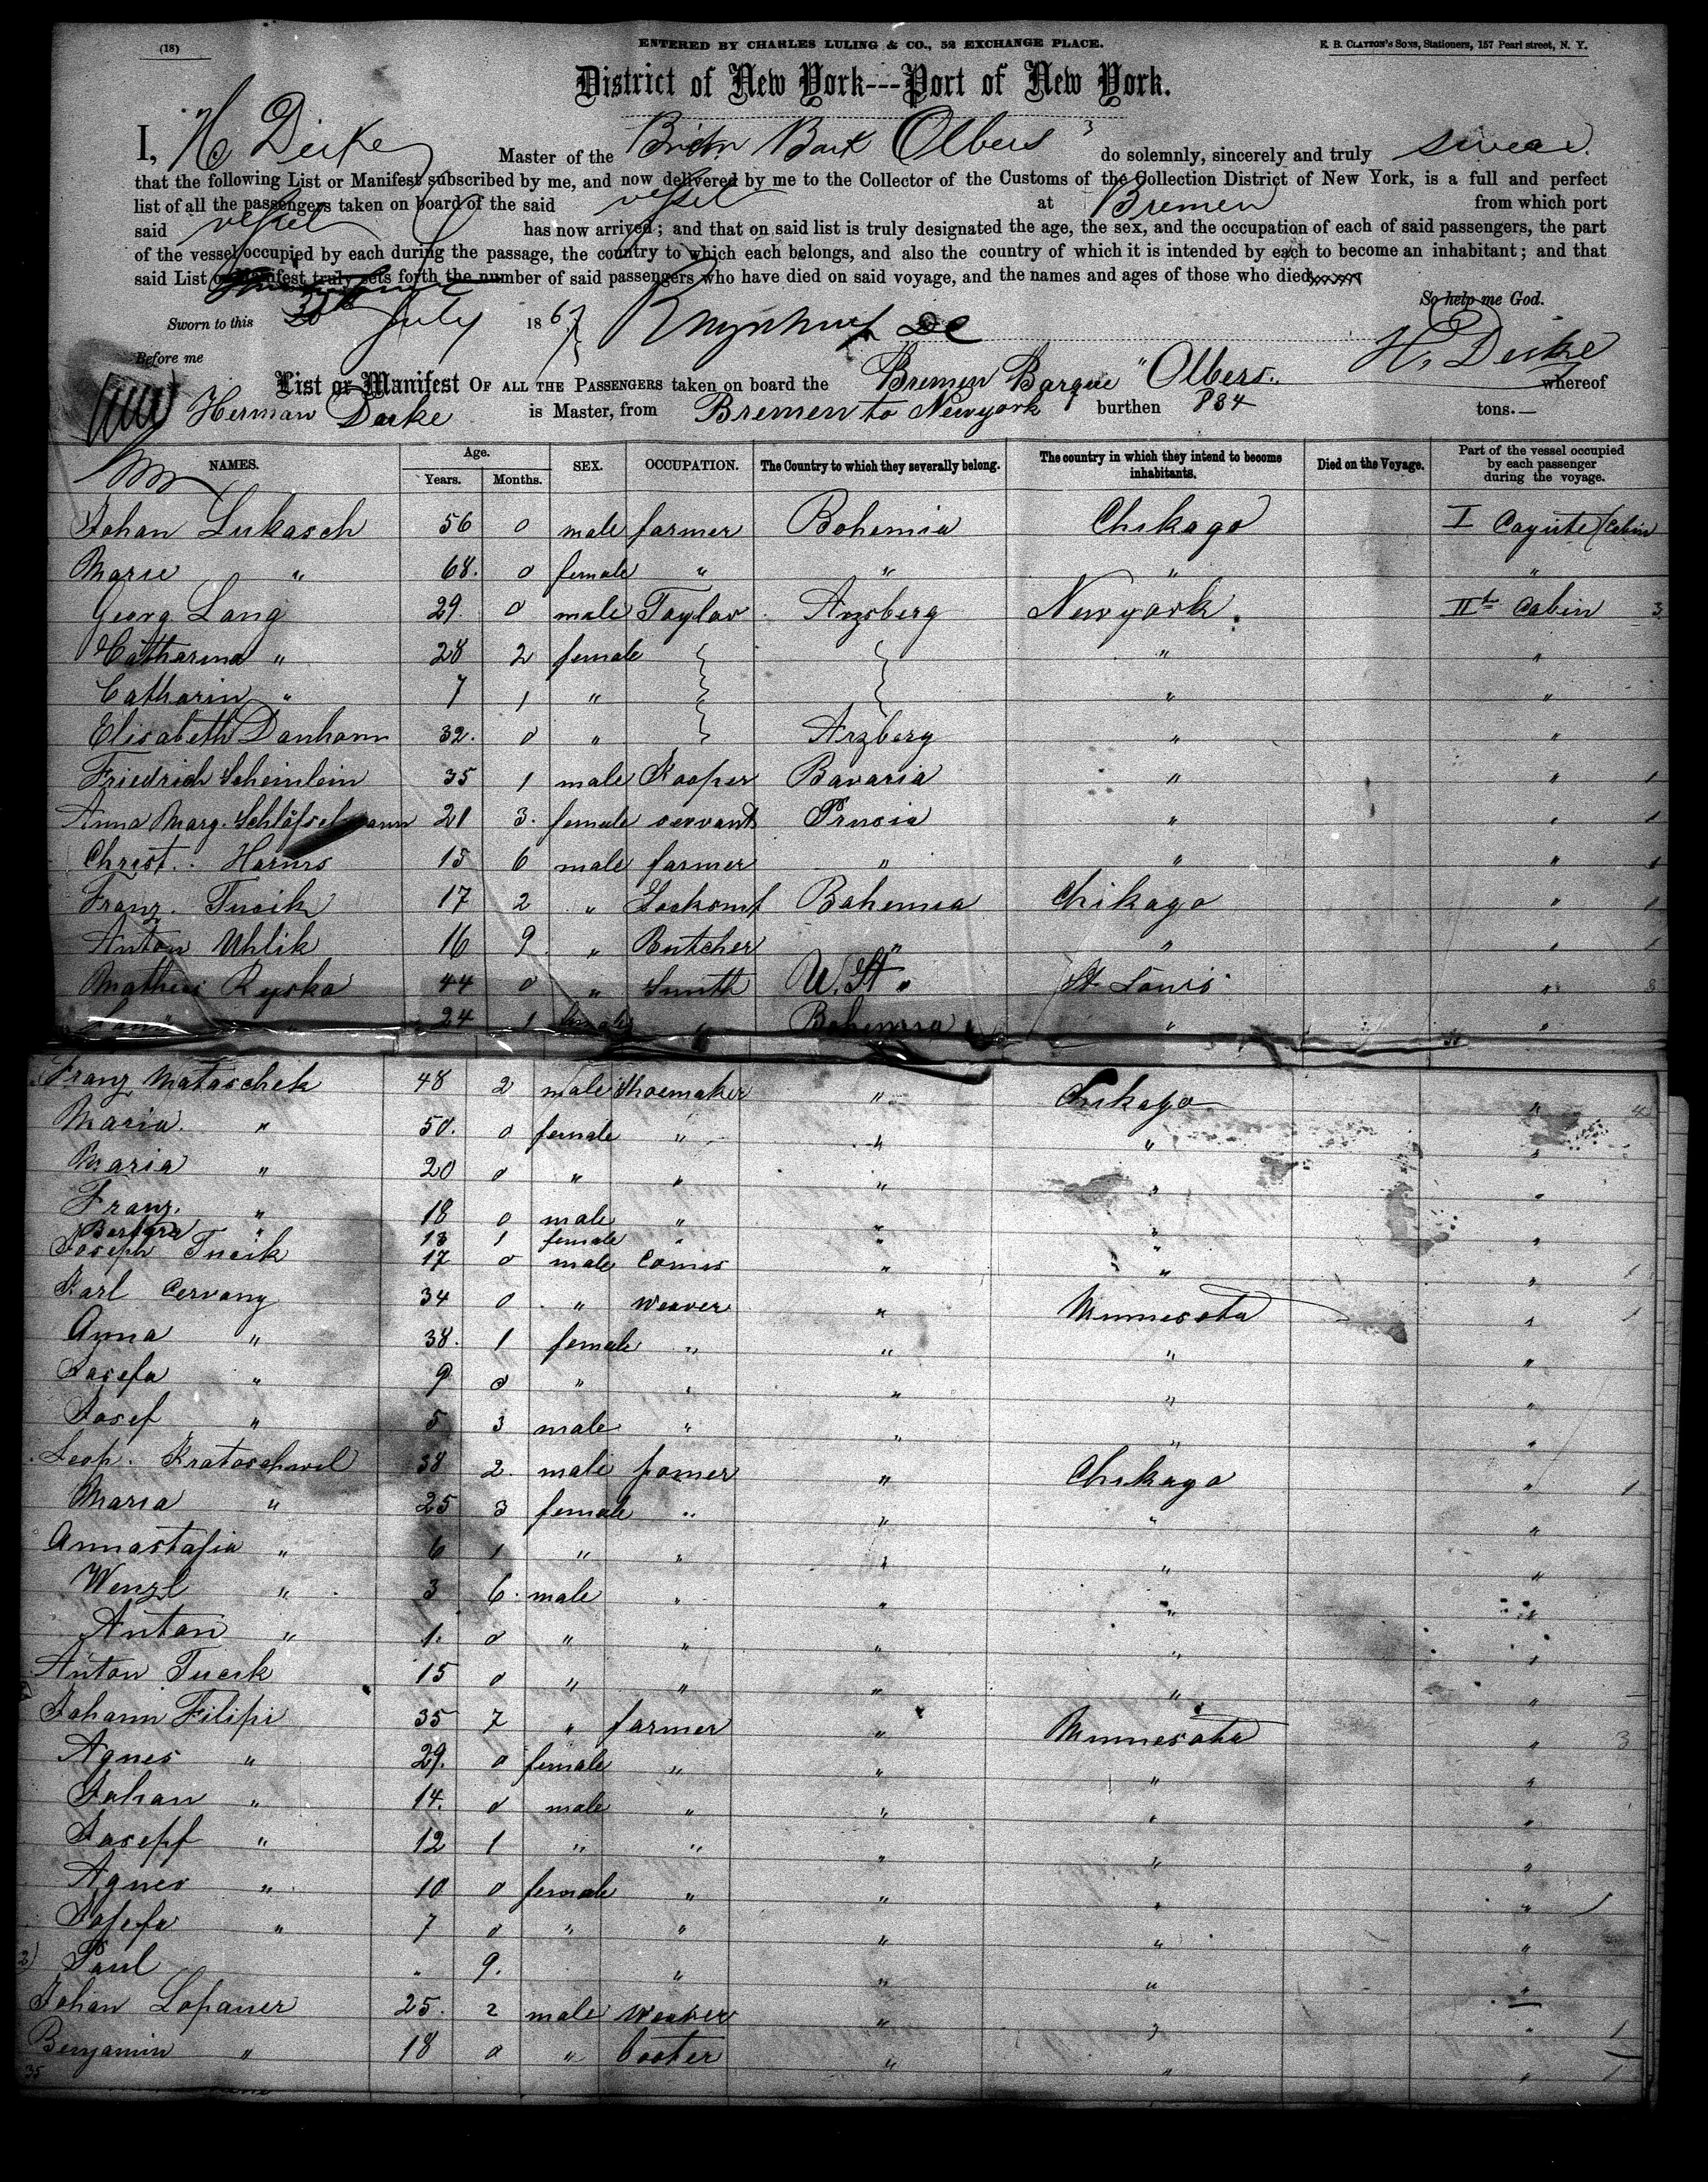 (18)
ENTERED BY CHARLES LULING & CO., 52 EXCHANGE PLACE.
E. B. CLAYTON'S SONS, Stationers, 157 Pearl street, N. Y.
District of New York---Port of New York.
I, H Deike Master of the Brem Bark Olbers do solemnly, sincerely and truly swear
that the following List or Manifest subscribed by me, and now delivered by me to the Collector of the Customs of the Collection District of New York, is a full and perfect
list of all the passengers taken on board of the said vessel at Bremen from which port
said vessel has now arrived; and that on said list is truly designated the age, the sex, and the occupation of each of said passengers, the part
of the vessel occupied by each during the passage, the country to which each belongs, and also the country of which it is intended by each to become an inhabitant; and that
said List or Manifest truly sets forth the number of said passengers who have died on said voyage, and the names and ages of those who died
So help me God.
Sworn to this July 1867
H. Deike
Before me
List or Manifest OF ALL THE PASSENGERS taken on board the Bremen Barque "Olbers" whereof
Herman Deike is Master, from Bremen to Newyork burthen 884 tons.
NAMES. Age. Years. Months. SEX. OCCUPATION. The Country to which they severally belong. The country in which they intend to become inhabitants. Died on the Voyage. Part of the vessel occupied by each passenger during the voyage.
Johan Lukasch 56 0 male farmer Bohemia Chikago I Cayute (Cabin
Marie " 68. 0 female " " " "
Georg Lang 29. 0 male Taylor Arzberg Newyork. IIt Cabin 3
Catharina " 28 2 female " "
Catharin " 7 1 " " "
Elisabeth Danhorn 32. 0 " Arzberg " "
Friedrich Scheinlein 35 1 male Kooper Bavaria " " 1
Anna Marg. 21 3. female servant Prusia " " 1
Christ. Harms 15 6 male farmer " " " 1
Franz Tucik 17 2 " Locksmt Bohemia Chikago " 1
Anton Uhlik 16 9 " Butcher " " " 1
Mathias Ryska 44 0 " Smith U. St " St Louis " 3
24 1 female " Bohemia " "
Franz Mataschek 48 2 male Shoemaker " Chikago " 4
Maria " 50. 0 female " " " "
Maria " 20 0 " " " " "
Franz " 18 0 male " " " "
Barbara " 13 1 female " " " "
Joseph Tucik 17 0 male Comis " " " 1
Karl Cervany 34 0 " Weaver " Minnesota " 1
Anna " 38. 1 female " " " "
Josefa " 9 0 " " " " "
Josef " 5 3 male " " " "
Leop. Kratoschwil 38 2. male farmer " Chikago " 1
Maria " 25 3 female " " " "
Annastasia " 6 1 " " " " "
Wenzl " 3 6. male " " " "
Anton " 1. 0 " " " " "
Anton Tucik 15 0 " " " " "
Johann Filipi 35 7 " farmer " Minnesota " 3
Agnes " 29. 0 female " " " "
Johan " 14. 0 male " " " "
Josepf " 12 1 " " " " "
Agnes " 10 0 female " " " " 1
Josefa " 7 0 " " " " "
2) Paul " 9. " " " "
Johan Lopauer 25. 2 male Weaver " " " 1
Benjamin " 18 0 " Cooter " " " 1
35